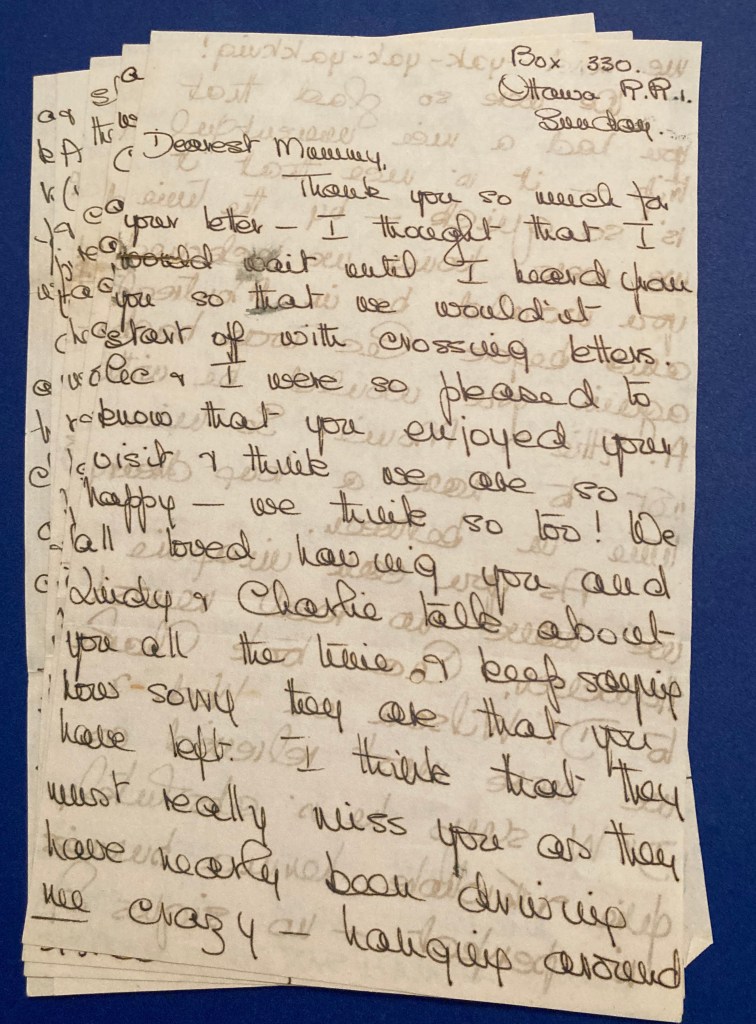 Box 330.
Ottawa R.R.1.
Sunday.
Dearest Mummy,
Thank you so much for
your leter – I thought that I
would wait until I heard from
you so that we would'nt
start off with crossing letters.
& I were so pleased to
know that you enjoyed your
visit & think we are so
happy – we think so too! We
all loved having you and
Lindy & Charlie talk about
you all the time & keep saying
how sorry they are that you
have left. I think that they
must really miss you as they
have nearly been driving
me crazy – hanging around